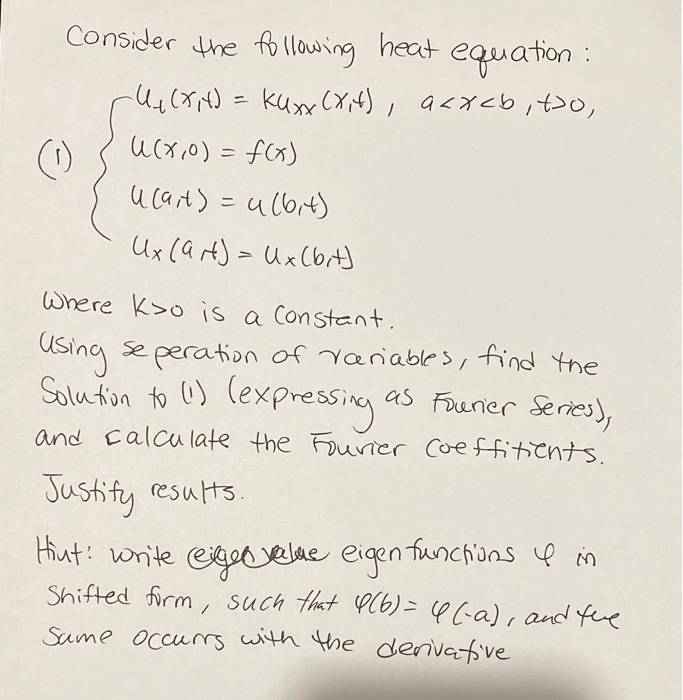 Consider the following heat equation :
u_t(x,t) = ku_xx(x,t) , a<x<b , t>0,
(1) u(x,0) = f(x)
u(a,t) = u(b,t)
u_x(a,t) = u_x(b,t)
Where K>0 is a constant.
Using seperation of variables, find the
Solution to (1) (expressing as Fourier Series),
and calculate the Fourier Coeffitients.
Justify results.
Hint: write eigenfunctions φ in
Shifted form, such that φ(b) = φ(-a), and the
same occurrs with the derivative